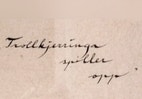 Trollkjerringa
spiller
opp